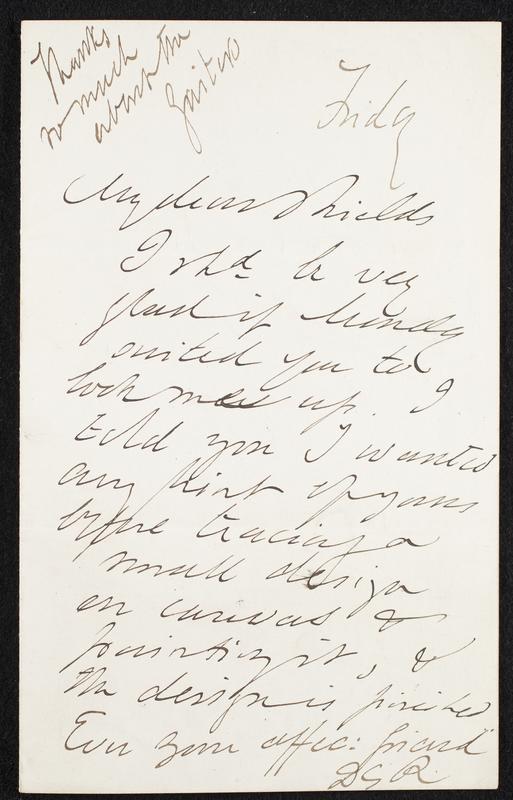 Thanks
so much
about the
Friday
My dear Shields
I shd. be very
glad if Monday
suited you to
look me up. I
told you I wanted
any hint of yours
before tracing a
small design
on canvas &
painting it, &
the design is finished
Ever your affec: friend
DGR.